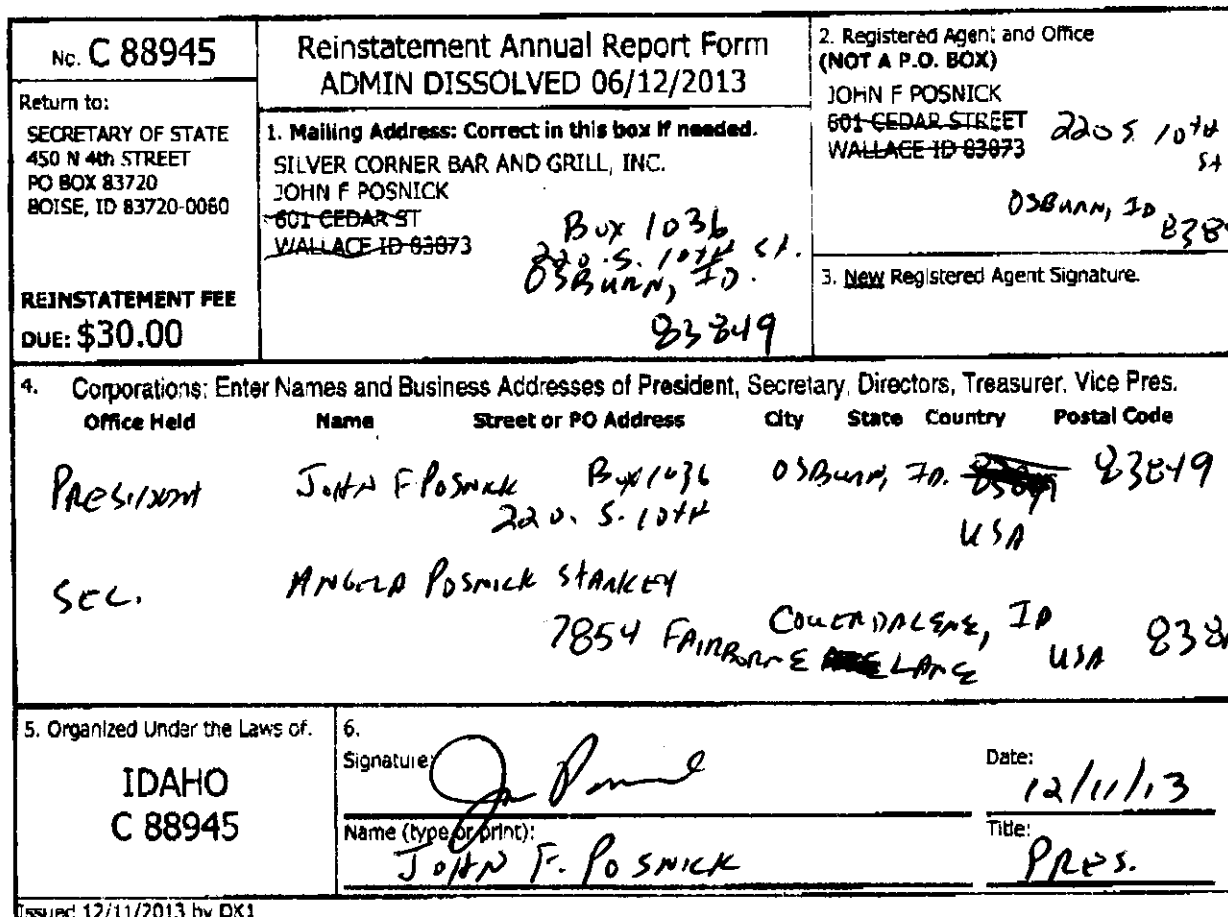 No. C 88945
Return to:
SECRETARY OF STATE
450 N 4th STREET
PO BOX 83720
BOISE, ID 83720-0080
REINSTATEMENT FEE
DUE: $30.00
Reinstatement Annual Report Form
ADMIN DISSOLVED 06/12/2013
1. Mailing Address: Correct in this box if needed.
SILVER CORNER BAR AND GRILL, INC.
JOHN F POSNICK
601 CEDAR ST
WALLACE ID 83873
Box 1036
220 S. 10th St.
OSBURN, ID.
83849
2. Registered Agent and Office
(NOT A P.O. BOX)
JOHN F POSNICK
601 CEDAR STREET
WALLACE ID 83873
220 S 10th
St
OSBURN, ID
8384
3. New Registered Agent Signature.
4. Corporations: Enter Names and Business Addresses of President, Secretary, Directors, Treasurer, Vice Pres.
Office Held Name Street or PO Address City State Country Postal Code
PRESIDENT JOHN F POSNICK Box 1036 OSBURN, ID. 83849
220. S. 10th USA
SEC. ANGELA POSNICK STARKEY
COUERDALENE, ID
7854 FAIRBORNE LANE USA 838
5. Organized Under the Laws of.
IDAHO
C 88945
6.
Signature:
Date:
12/11/13
Name (type or print):
JOHN F. POSNICK
Title:
PRES.
Issued 12/11/2013 by DK1